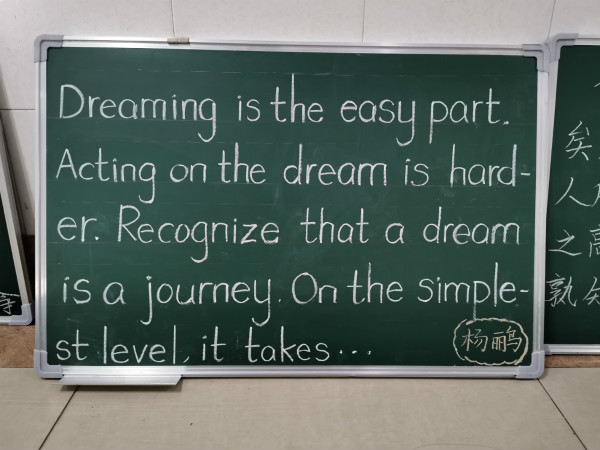 Dreaming is the easy part.
Acting on the dream is hard-
er. Recognize that a dream
is a journey. On the simple-
st level, it takes...
杨鹂
矣
人
之高
孰知